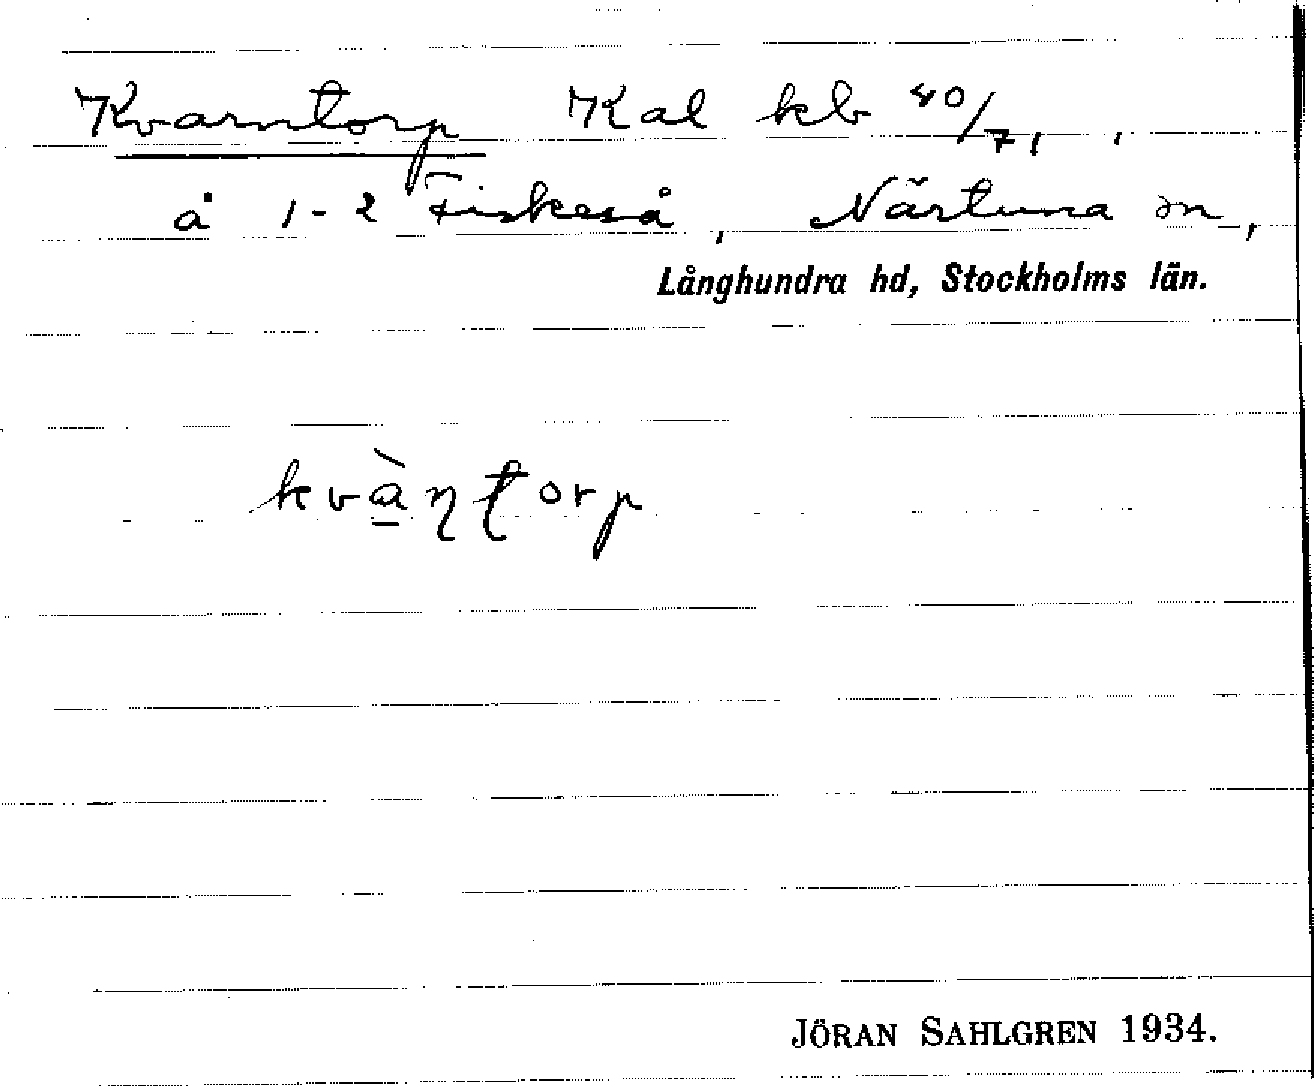 Kvarntorp Kal kb 40/71,
å 1-2 Fiskeså, Närtuna sn,
Långhundra hd, Stockholms län.
kvàṇṭorp
JÖRAN SAHLGREN 1934.